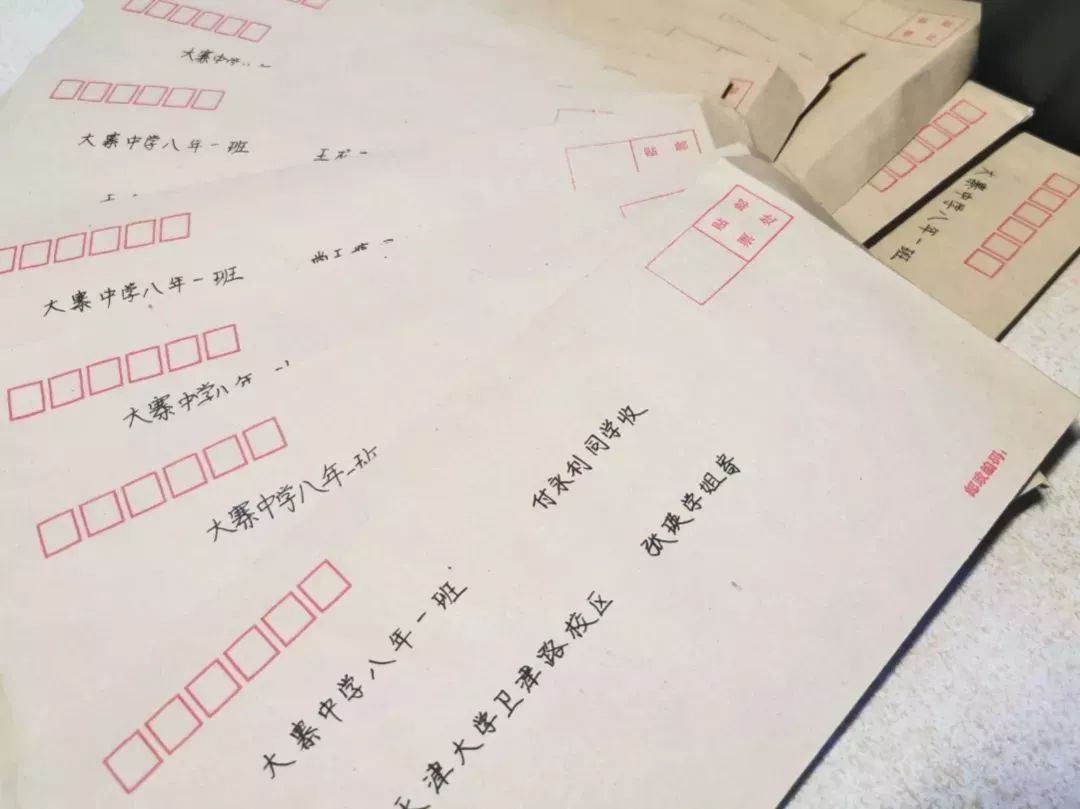 大寨中学
大寨中学八年一班
大寨中学八年一班
大寨中学八年
大寨中学八年一班
贴邮
票处
付永利同学收
张瑛学姐寄
大寨中学八年一班
天津大学卫津路校区
邮政编码:
贴邮
大寨中学八年一班